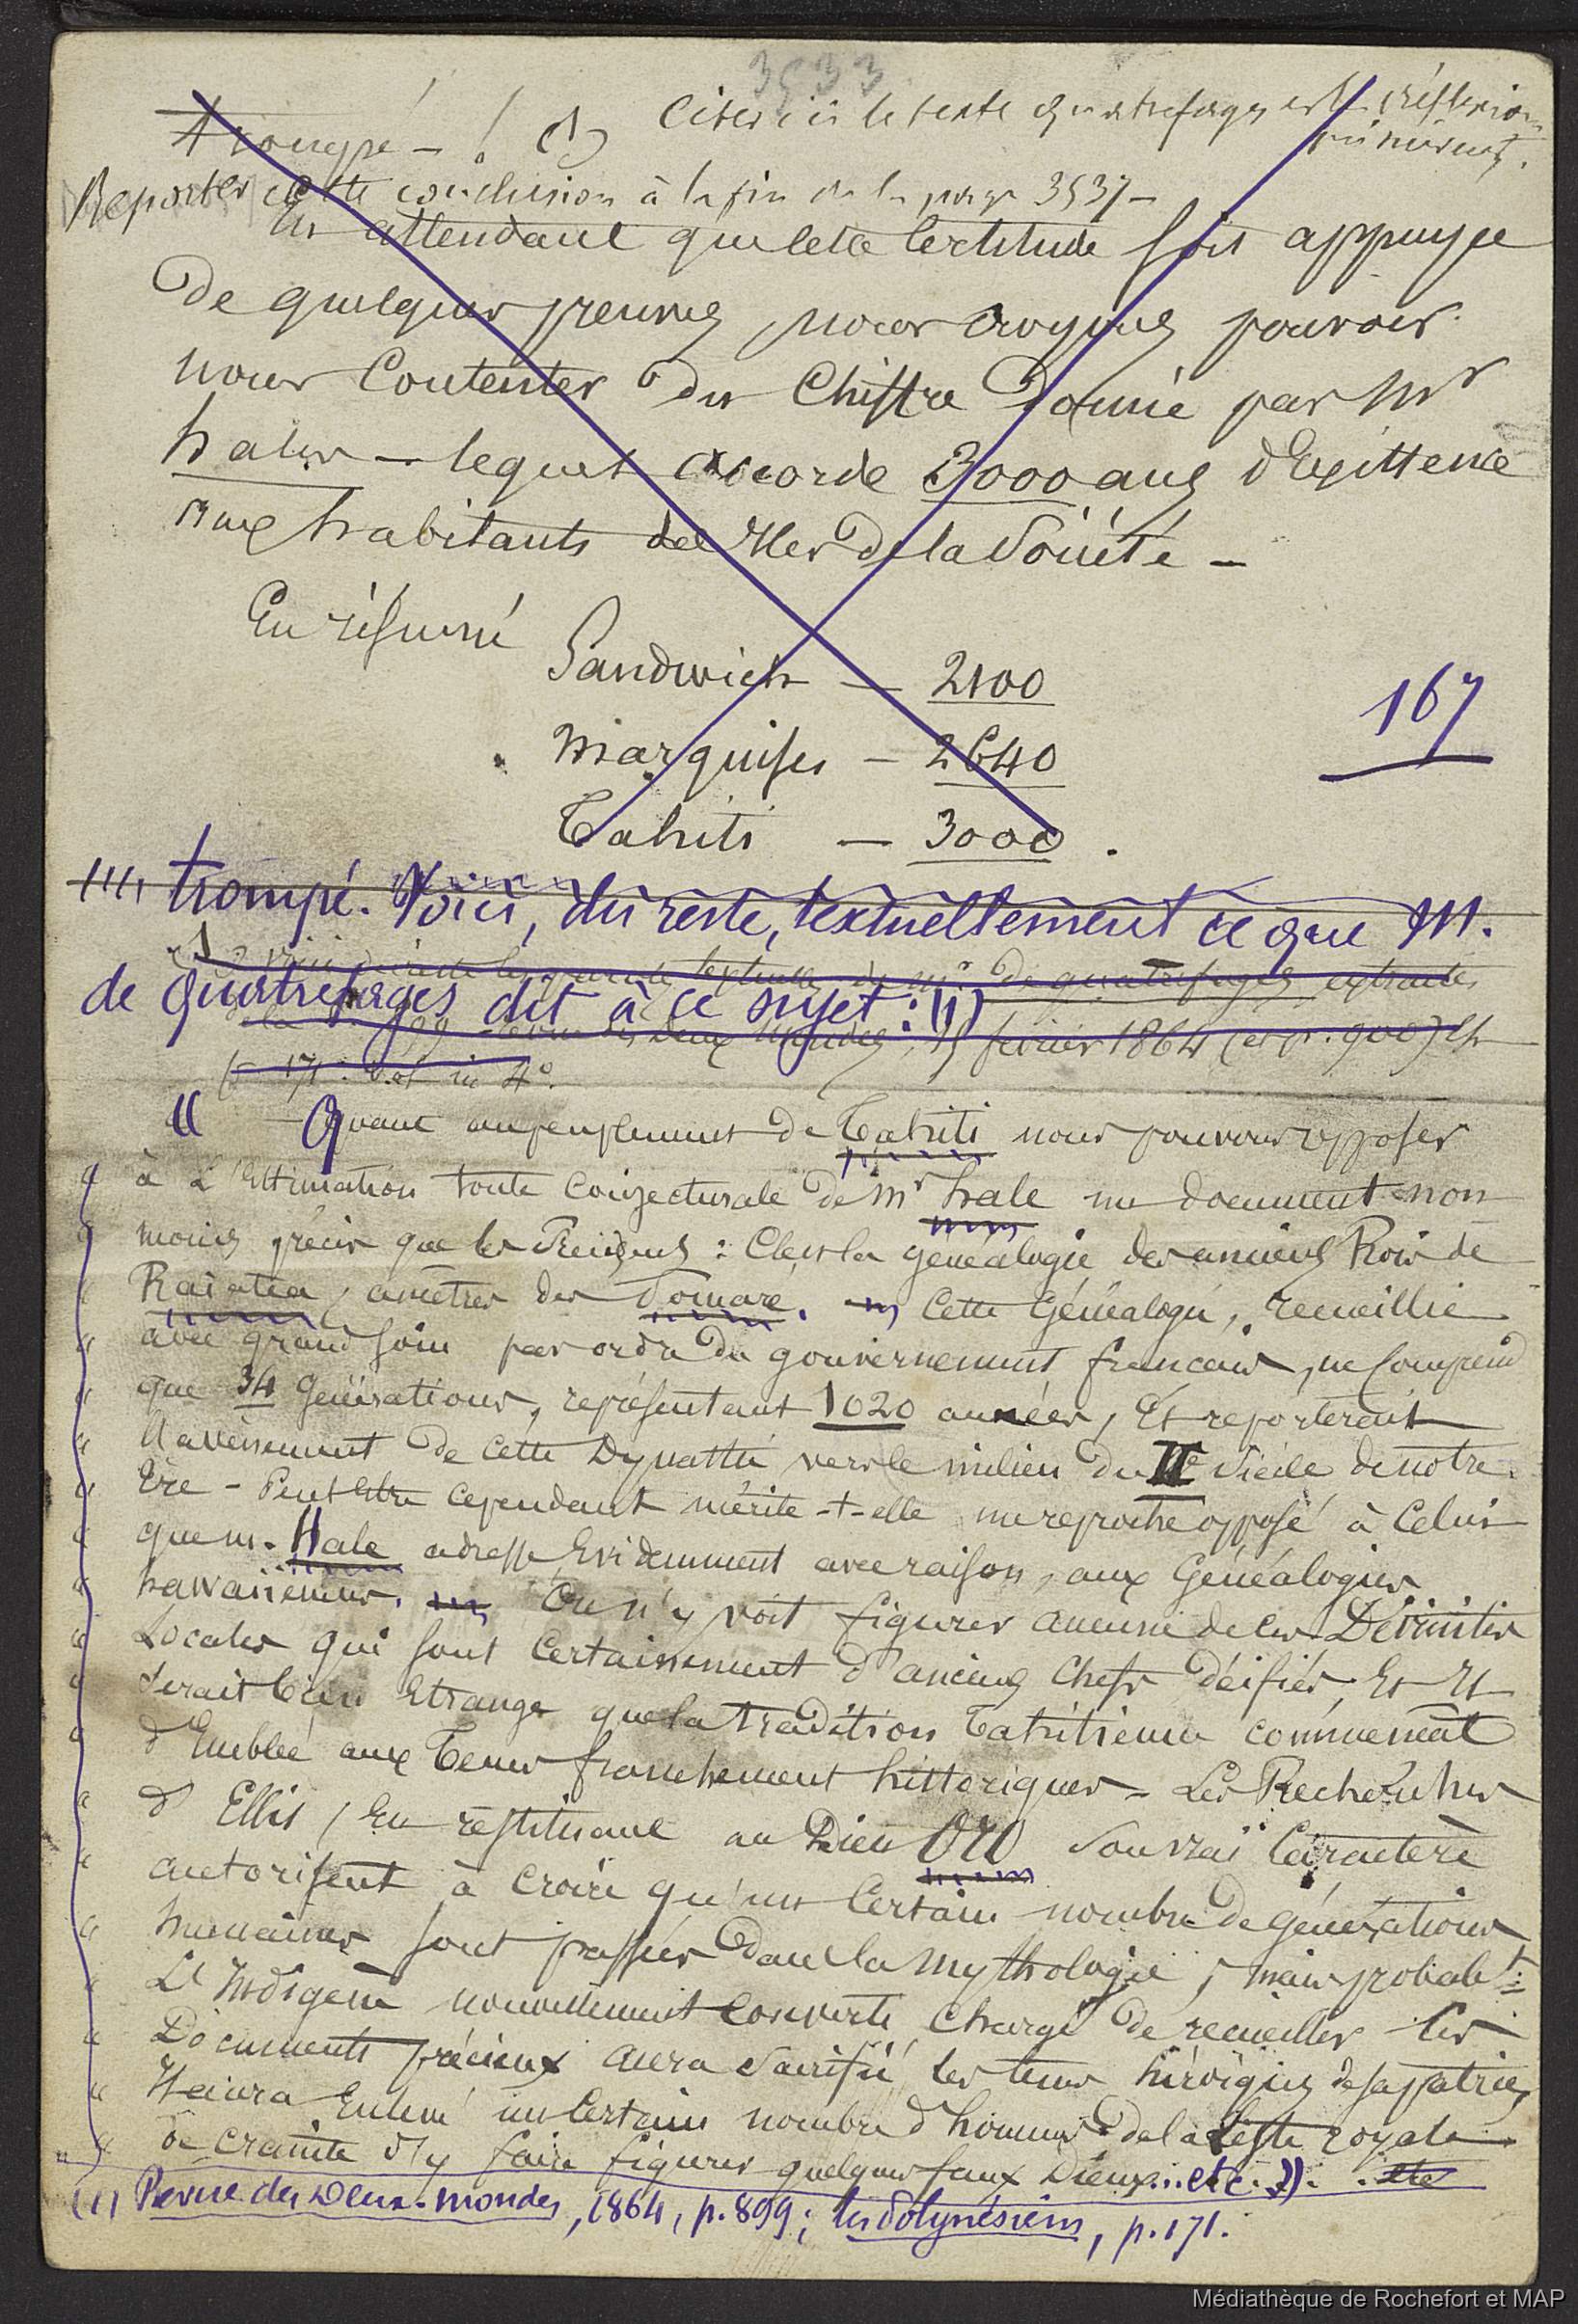 3533
trompé — ! (1) Citer ici le texte Quatrefages et la réflexion
qui suivent.
Reporter cette conclusion à la fin de la page 3537 —
En attendant que cette Certitude soit appuyée
De quelques preuves, nous croyons pouvoir
nous Contenter du Chiffre donné par Mr
hales — lequel accorde 3000 ans d'Existence
aux habitants des Iles de la Société —
En résumé
Sandwich — 2100
Marquises — 2640
Tahiti — 3000.
167
trompé. Voici, du reste, textuellement ce que M.
(1) Voici du reste les paroles textuelles de Mr de quatrefages extraites
de Quatrefages dit à ce sujet : (1)
de la p. 899 Revue des Deux Mondes, 15 février 1864 (et p. 900) Et
p 171 in 4°.
« Quant au peuplement de Tahiti nous pouvons opposer
« à L'Estimation toute Conjecturale de Mr hale un document non
« moins précis que les Précédents : C'est la généalogie des anciens Rois de
« Raiatea, ancêtres des Pomaré. Cette Généalogie, recueillie
« avec grand soin par ordre du gouvernement francais, ne Comprend
« que 34 Générations, représentant 1020 années, Et reporterait
« l'avènement de cette Dynastie vers le milieu du IXe Siècle de notre
« Ere - Peut être cependant mérite-t-elle un reproche opposé à Celui
« que m. Hale adresse Evidemment avec raison, aux Généalogies
« hawaiiennes. On n'y voit figurer aucune de ces Divinités
« Locales qui sont certainement d'anciens Chefs déifiés, Et Il
« Serait bien Etrange que la tradition Tahitienne commencât
« d'Emblée aux Tems franchement historiques - Les Recherches
« d'Ellis, En restituant au Dieu Oro Son vrai Caractère
« autorisent à croire qu'un Certain nombre de générations
« humaines sont passées dans la Mythologie ; mais probablt:
« L'Indigène nouvellement converti, Chargé de recueillir les
« Documents précieux aura Sacrifié les tems héroïques de sa patrie,
« Il aura Enlevé un Certain nombre d'hommes de la Liste royale
« de crainte d'y faire figurer quelques faux Dieux... etc. ». etc
(1) Revue des Deux-mondes, 1864, p. 899 ; les Polynésiens, p. 171.
Médiathèque de Rochefort et MAP